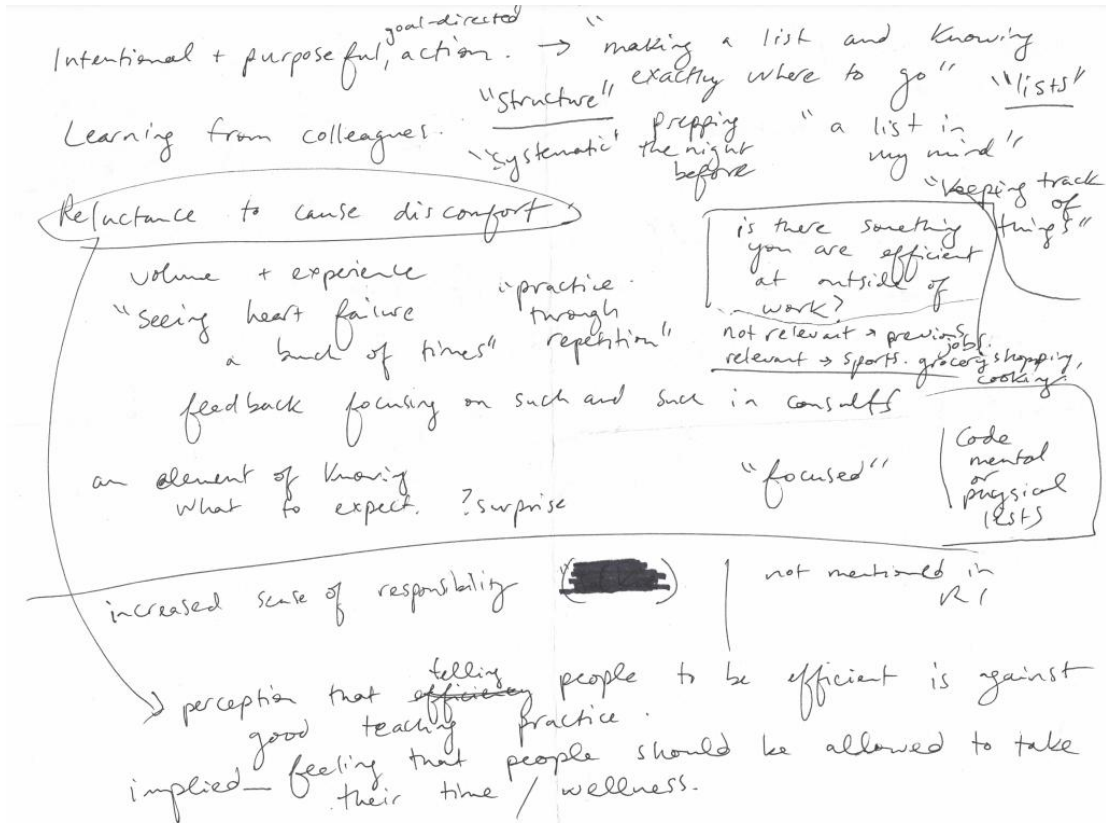 goal-directed
Intentional + purposeful, action. → "making a list and knowing
exactly where to go"
"lists"
"structure"
Learning from colleagues.
"systematic"
prepping
the night
before
"a list in
my mind"
"keeping track
of
things"
Reluctance to cause discomfort
is there something
you are efficient
at outside of
work?
not relevant → previous
jobs.
relevant → sports. grocery shopping,
cooking.
volume + experience
"seeing heart failure
a bunch of times"
"practice
through
repetition"
feedback focusing on such and such in consults
an element of knowing
what to expect. ?surprise
"focused"
Code
mental
or
physical
lists
increased sense of responsibility
not mentioned in
R1
telling
perception that efficiency people to be efficient is against
good teaching practice.
implied — feeling that people should be allowed to take
their time / wellness.